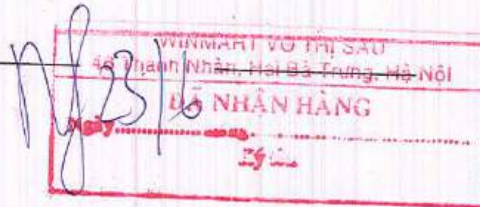 WINMART VÕ THỊ SÁU
Thanh Nhàn, Hai Bà Trưng, Hà Nội
ĐÃ NHẬN HÀNG
Ngày
23/6
Ký tên